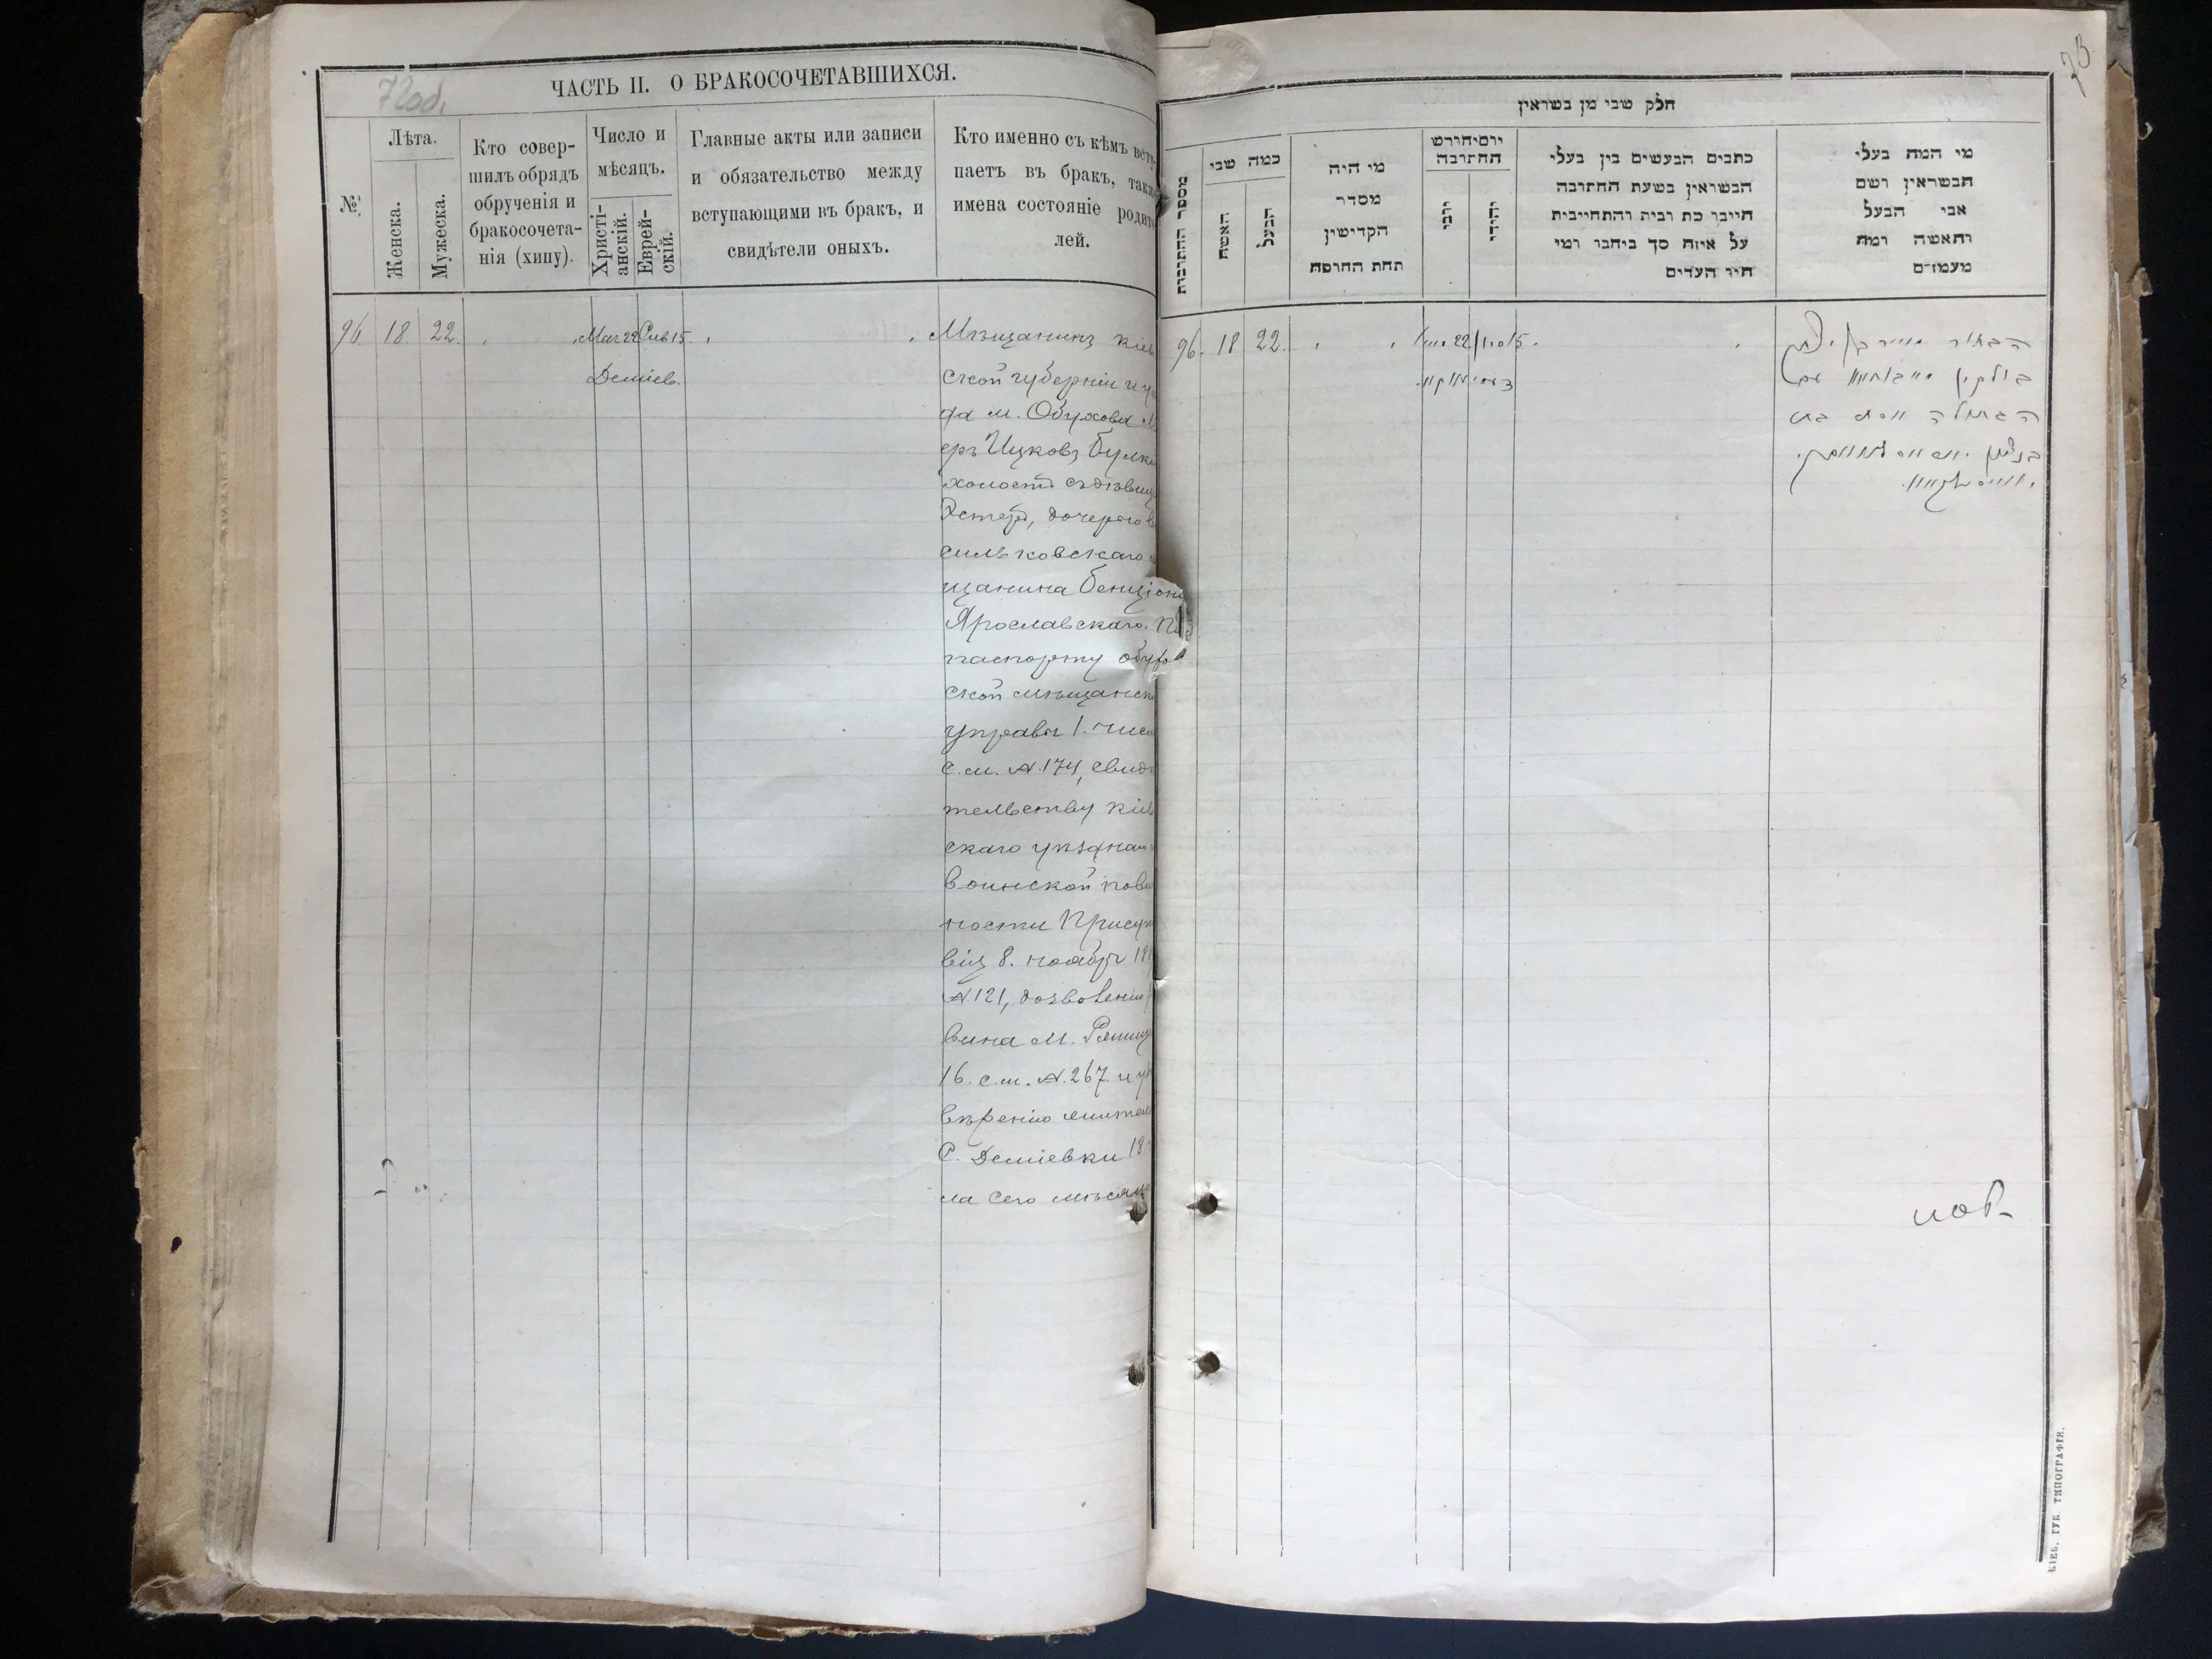 72об.
ЧАСТЬ II. О БРАКОСОЧЕТАВШИХСЯ.
№
Лѣта.
Женска.
Мужеска.
Кто совер-
шилъ обрядъ
обрученія и
бракосочета-
нія (хипу).
Число и
мѣсяцъ.
Христі-
анскій.
Еврей-
скій.
Главные акты или записи
и обязательство между
вступающими въ бракъ, и
свидѣтели оныхъ.
Кто именно съ кѣмъ всту-
паетъ въ бракъ, также
имена состояніе родит
лей.
96. 18. 22.
Маг 22 Сив 15.
Деміев.
Мѣщанинъ Кіев
ской губерніи и у
да м. Обухова М
еръ Ицковъ Булки
холостъ съ дѣвиц
Эстер, дочерью В
сильковскаго м
щанина Бенціона
Ярославскаго. По
паспорту обухо
ской мѣщанск
управы 1. чис
с.м. №.174, свидѣ
тельству Кіев
скаго уѣзднаго
воинской пови
ности Присут
вія 8. ноября 18
№.121, дозволенію
вина м.
16. с.м. №.267. и у
вѣренію жител
С. Деміевки 18.
ла сего мѣсяца
73.
חלק שני מן בשראין
מספר החתונות
כמה שני
האשה
הבעל
מי היה
מסדר
הקדישין
תחת החופה
יום וחודש
החתונה
נוצרי
יהודי
כתבים הנעשים בין בעלי
הנשואין בשעת החתונה
חייבו כת ובית והתחייבות
על איזה סך ביחבו ומי
היו העדים
מי המה בעלי
הנשואין ושם
אבי הבעל
והאשה ומה
מעמדם
96. 18 22.
22 15.
הבחור מאיר בן יצחק
בולקין
הבתולה אסתר בת
בנציון
КІЕВ. ГУБ. ТИПОГРАФІЯ.